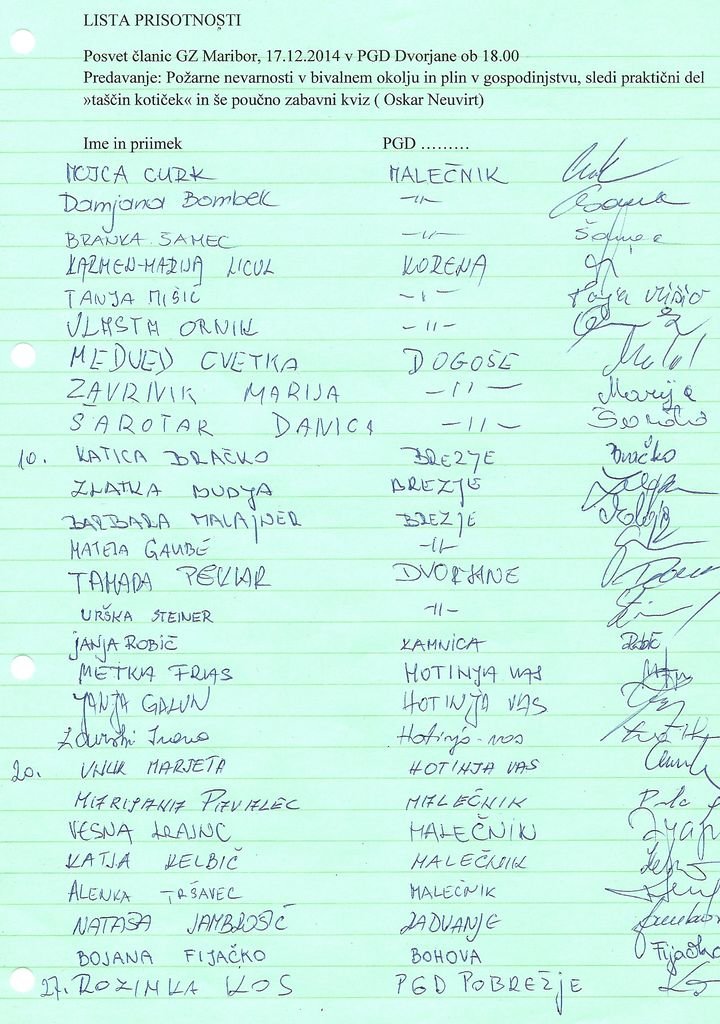 LISTA PRISOTNOSTI
Posvet članic GZ Maribor, 17.12.2014 v PGD Dvorjane ob 18.00
Predavanje: Požarne nevarnosti v bivalnem okolju in plin v gospodinjstvu, sledi praktični del
»taščin kotiček« in še poučno zabavni kviz ( Oskar Neuvirt)
Ime in priimek PGD ………
MOJCA CURK MALEČNIK
Damjana Bombek -11-
BRANKA ŠAMEC -11-
KARMEN-MARIJA LICUL KORENA
TANJA MIŠIČ -1- Tanja Mišič
VLASTA ORNIK -11-
MEDVED CVETKA DOGOŠE
ZAVRNIK MARIJA -11- Marija
ŠAROTAR DANICA -11-
10. KATICA BRAČKO BREZJE Bračko
ZLATKA BREZJE
BARBARA MALAJNER BREZJE
MATEJA GAUBE -11-
TAMARA PEKLAR DVORJANE
URŠKA STEINER -11-
JANJA ROBIČ KAMNICA Robič
METKA FRAS HOTINJA VAS
JANJA GALUN HOTINJA VAS
Hotinja vas
20. MARJETA HOTINJA VAS
MARIJANA PAVALEC MALEČNIK
VESNA KRAJNC MALEČNIK
KATJA KELBIČ MALEČNIK
ALENKA TRŠAVEC MALEČNIK
NATAŠA JAMBROŠIČ RADVANJE
BOJANA FIJAČKO BOHOVA Fijačko
27. ROZIMKA KOS PGD POBREŽJE